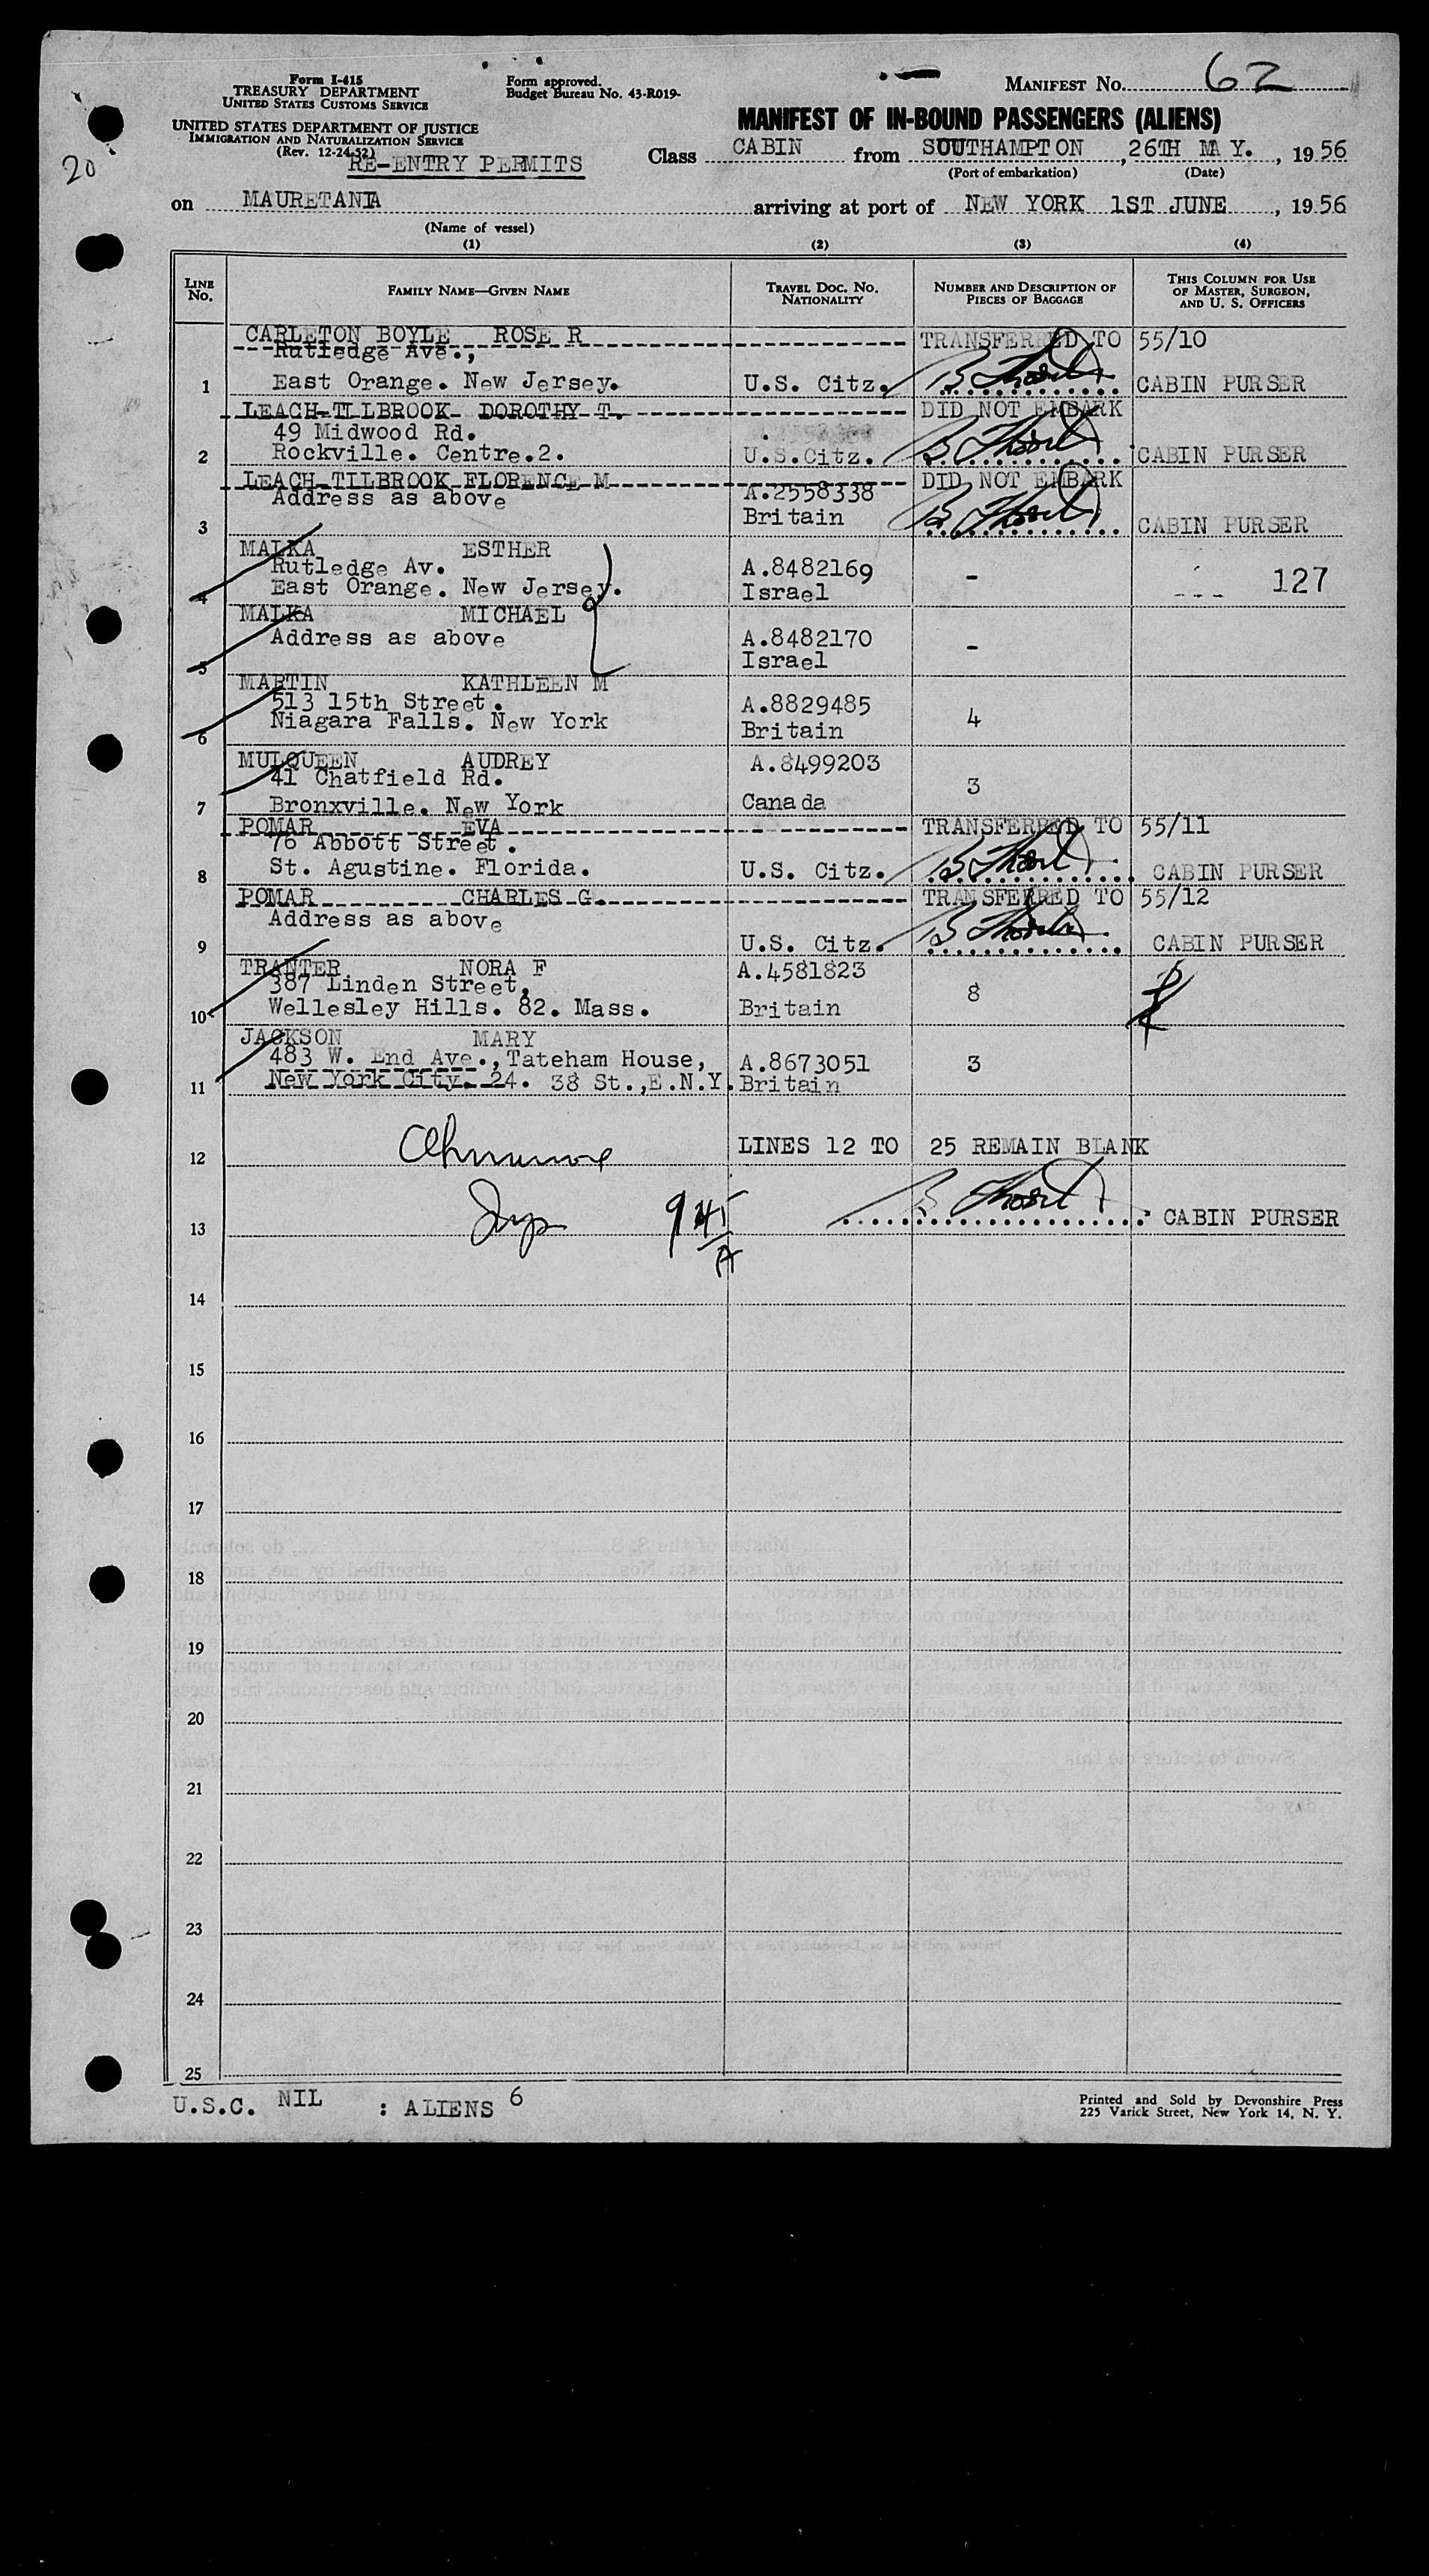 Form I-415
TREASURY DEPARTMENT
UNITED STATES CUSTOMS SERVICE
Form approved.
Budget Bureau No. 43-R019-
MANIFEST No. 62
UNITED STATES DEPARTMENT OF JUSTICE
IMMIGRATION AND NATURALIZATION SERVICE
(Rev. 12-24-52)
20
RE-ENTRY PERMITS
MANIFEST OF IN-BOUND PASSENGERS (ALIENS)
Class CABIN from SOUTHAMPTON, 26TH MAY., 1956
(Port of embarkation) (Date)
on MAURETANIA arriving at port of NEW YORK 1ST JUNE, 1956
(Name of vessel)
(1) (2) (3) (4)
LINE No. FAMILY NAME—GIVEN NAME TRAVEL DOC. NO. NATIONALITY NUMBER AND DESCRIPTION OF PIECES OF BAGGAGE THIS COLUMN FOR USE OF MASTER, SURGEON, AND U. S. OFFICERS
CARLETON BOYLE ROSE R TRANSFERRED TO 55/10
Rutledge Ave.,
1 East Orange. New Jersey. U.S. Citz. CABIN PURSER
LEACH-TILBROOK DOROTHY T. DID NOT EMBARK
49 Midwood Rd.
2 Rockville. Centre.2. U.S.Citz. CABIN PURSER
LEACH-TILBROOK FLORENCE M DID NOT EMBARK
Address as above A.2558338
3 Britain CABIN PURSER
MALKA ESTHER
Rutledge Av. A.8482169 - 127
4 East Orange. New Jersey. Israel
MALKA MICHAEL
Address as above A.8482170 -
5 Israel
MARTIN KATHLEEN M
513 15th Street. A.8829485 4
6 Niagara Falls. New York Britain
MULQUEEN AUDREY A.8499203
41 Chatfield Rd. 3
7 Bronxville. New York Canada
POMAR EVA TRANSFERRED TO 55/11
76 Abbott Street.
8 St. Agustine. Florida. U.S. Citz. CABIN PURSER
POMAR CHARLES G. TRANSFERRED TO 55/12
Address as above
9 U.S. Citz. CABIN PURSER
TRANTER NORA F A.4581823
387 Linden Street, 8
10 Wellesley Hills. 82. Mass. Britain
JACKSON MARY
483 W. End Ave., Tateham House, A.8673051 3
11 New York City. 24. 38 St.,E.N.Y. Britain
12 LINES 12 TO 25 REMAIN BLANK
13 CABIN PURSER
14
15
16
17
18
19
20
21
22
23
24
25
U.S.C. NIL : ALIENS 6
Printed and Sold by Devonshire Press
225 Varick Street, New York 14, N. Y.